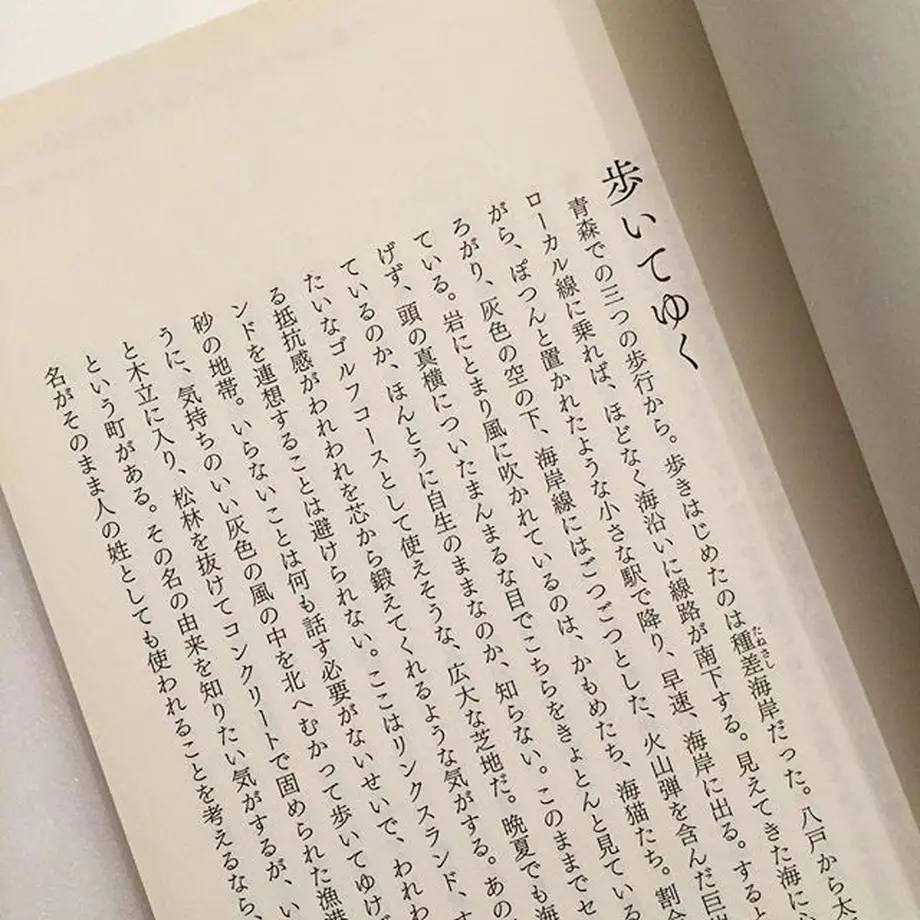 歩いてゆく
青森での三つの歩行から。歩きはじめたのは種差海岸だった。八戸から太
たねさし
ローカル線に乗れば、ほどなく海沿いに線路が南下する。見えてきた海に心
がら、ぽつんと置かれたような小さな駅で降り、早速、海岸に出る。すると
ろがり、灰色の空の下、海岸線にはごつごつとした、火山弾を含んだ巨岩
ている。岩にとまり風に吹かれているのは、かもめたち、海猫たち。割合
げず、頭の真横についたまんまるな目でこちらをきょとんと見ている
ているのか、ほんとうに自生のままなのか、知らない。このままでセ
たいなゴルフコースとして使えそうな、広大な芝地だ。晩夏でも海
る抵抗感がわれわれを芯から鍛えてくれるような気がする。あの
ンドを連想することは避けられない。ここはリンクスランド、す
砂の地帯。いらないことは何も話す必要がないせいで、われわ
うに、気持ちのいい灰色の風の中を北へむかって歩いてゆけ
と木立に入り、松林を抜けてコンクリートで固められた漁港
という町がある。その名の由来を知りたい気がするが、い
名がそのまま人の姓としても使われることを考えるなら、